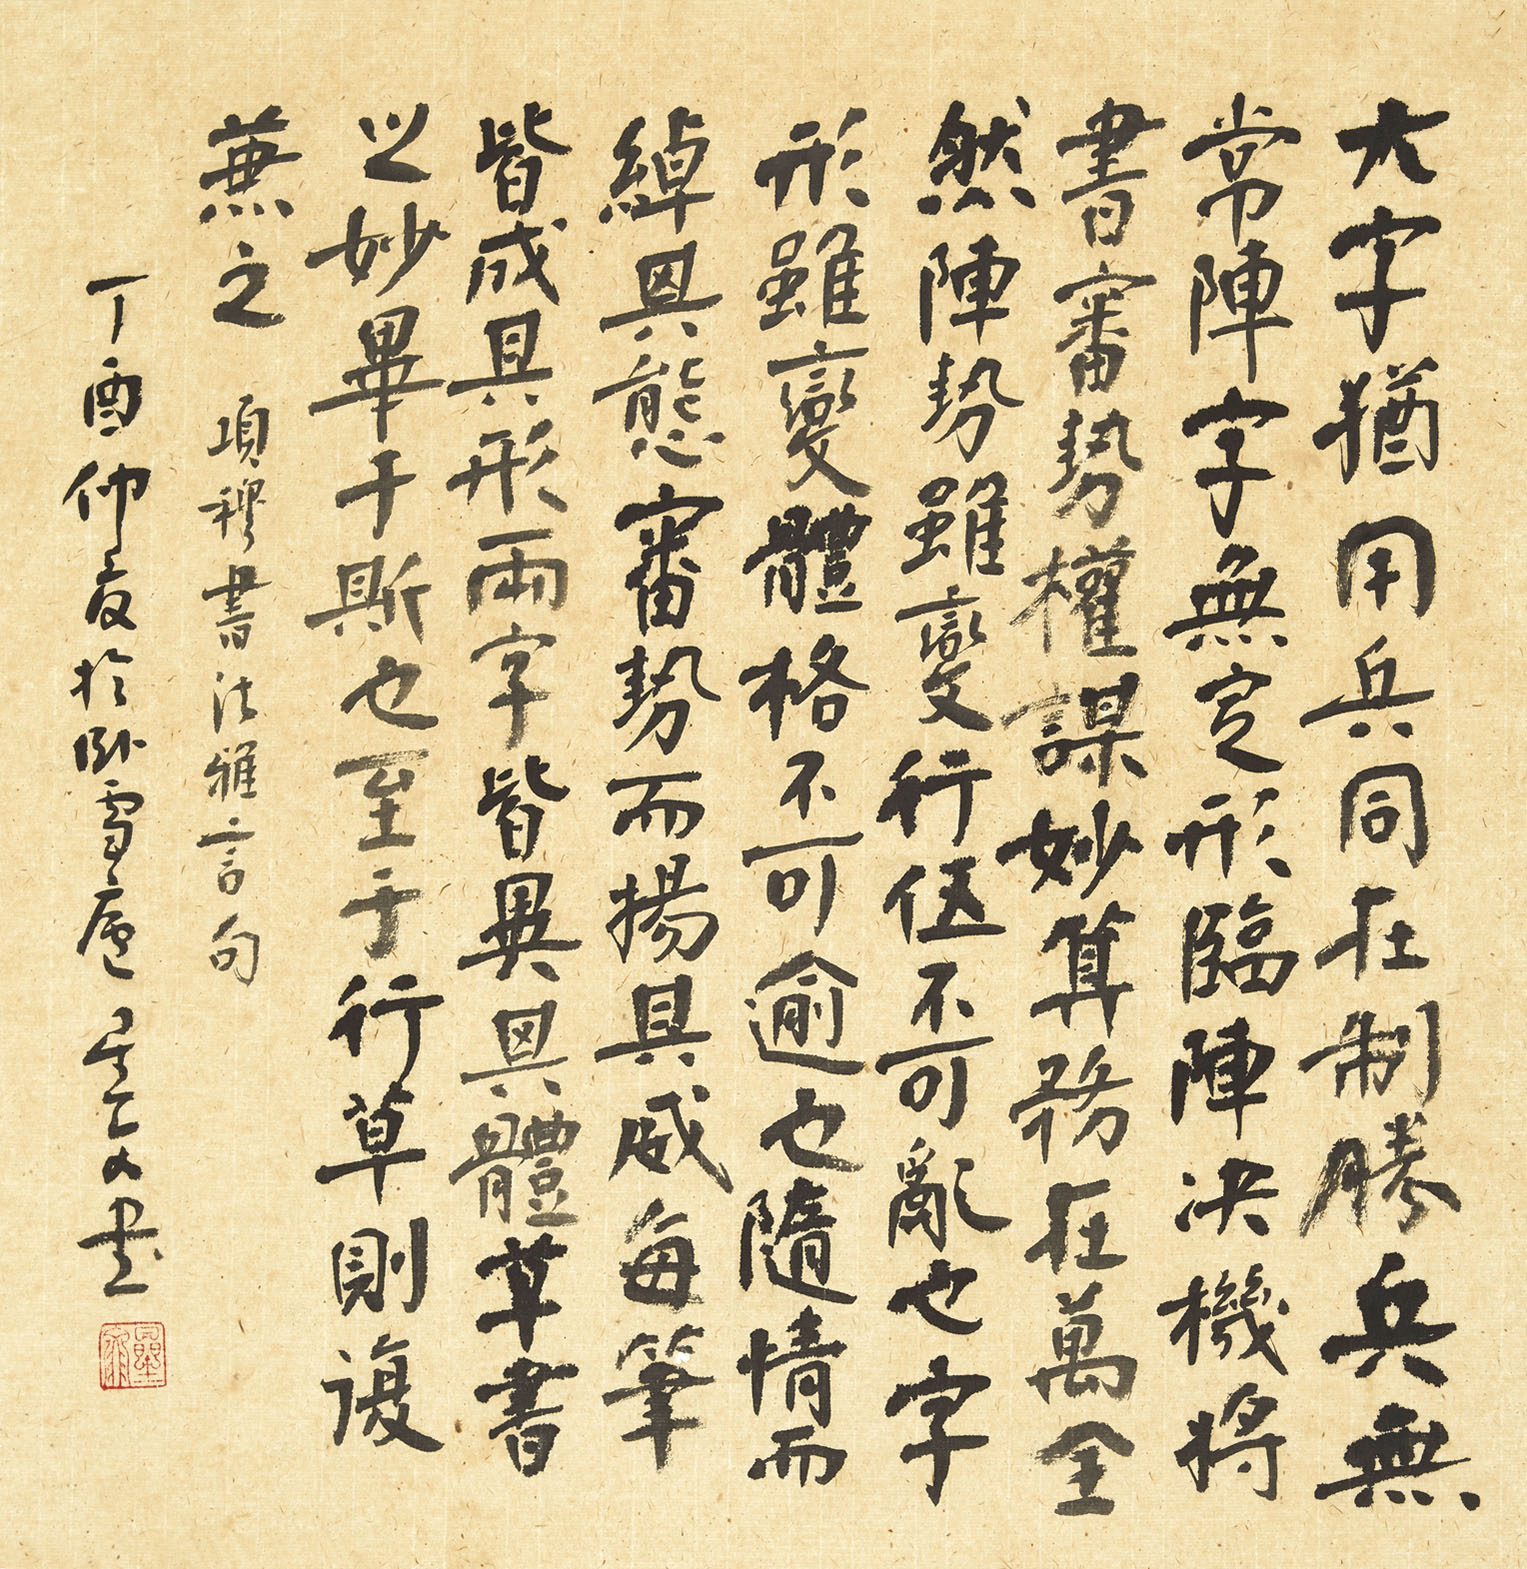 大字猶用兵同在制勝兵無
常陣字無定形臨陣決機將
書審勢權謀妙算務在萬全
然陣勢雖變行伍不可亂也字
形雖變體格不可逾也隨情而
綽其態審勢而揚其威每筆
皆成其形兩字皆異其體草書
之妙畢于斯也至于行草則復
兼之 項穆書法雅言句
丁酉仲夏於臥雪廬 書